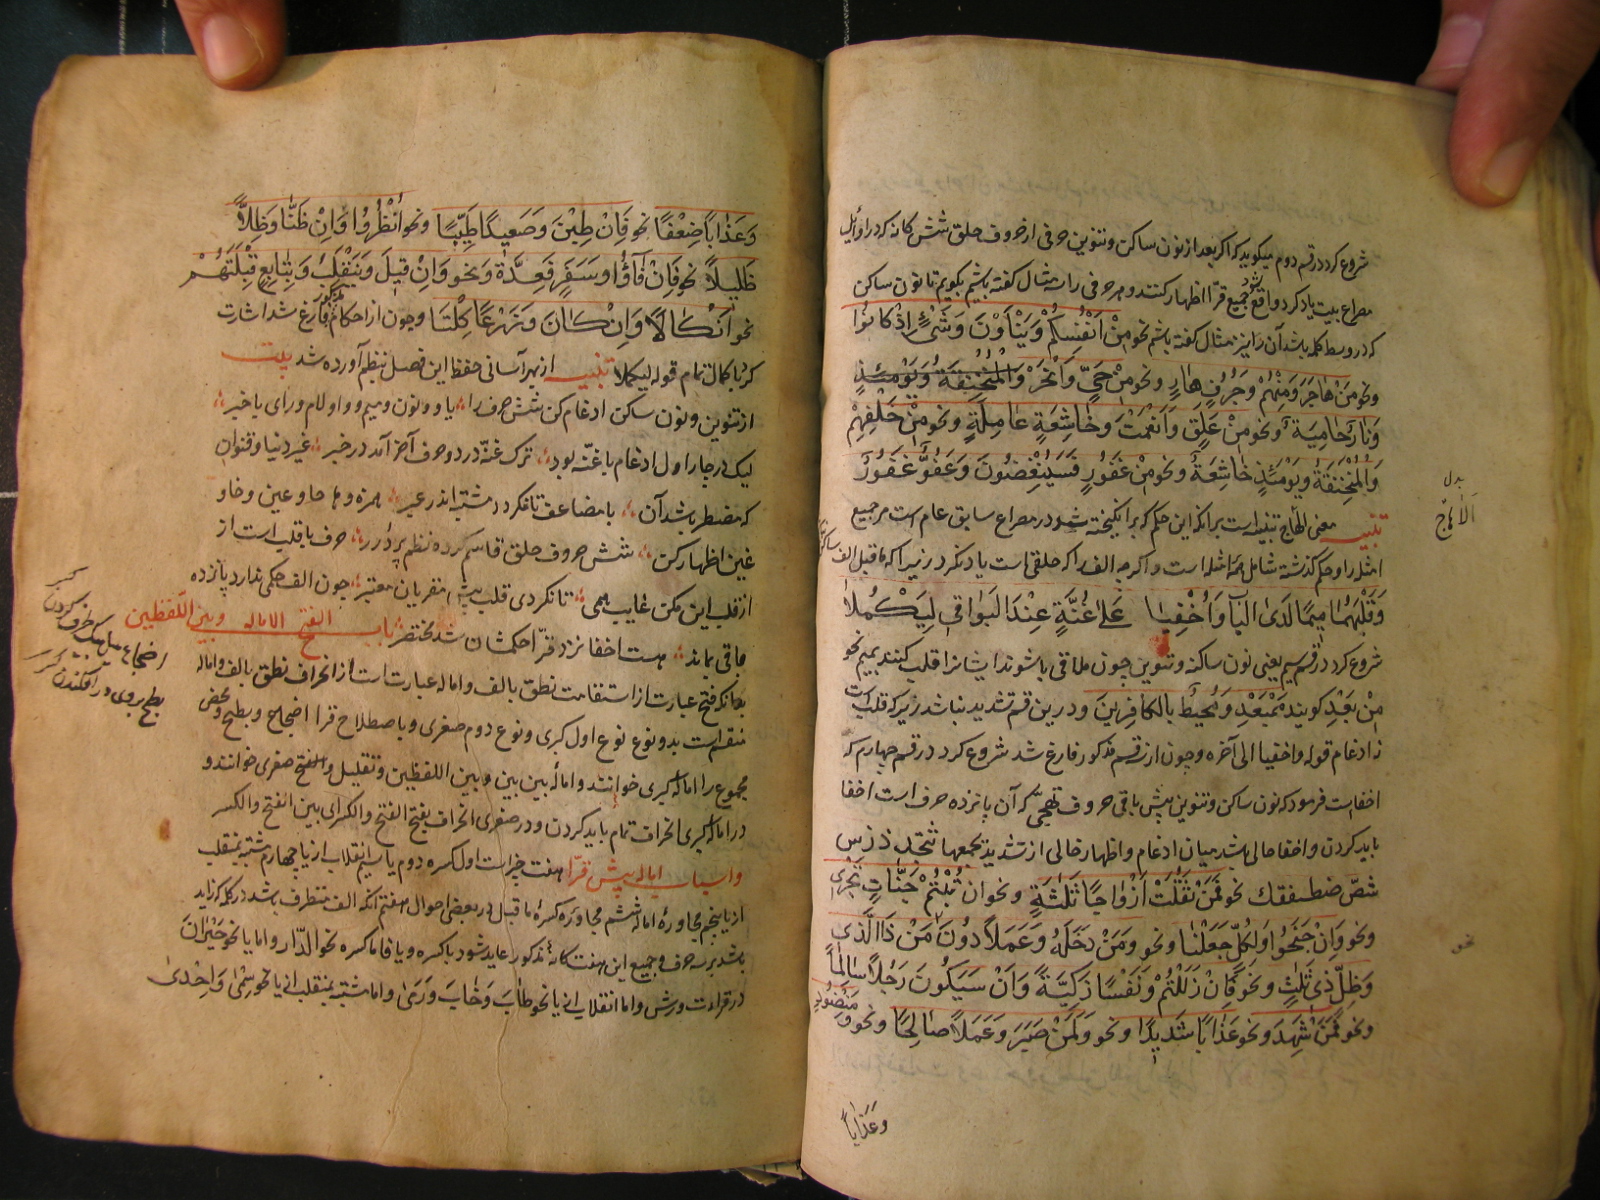 شروع کرد در قسم دوم میکوید که اکر بعد از نون ساکن و تنوین حرفی از حروف حلق شش کانه که در اوایل
مصراع بیت یاد کرد واقع شود جمیع قرّا اظهار کنند و هر حرفی را سه مثال کفته باشیم بکویم تا نون ساکن
که در وسط کلمه باشد آن را نیز مثال کفته باشم نحو مِنْ اَنْفُسِکُمْ وَیَنْأَوْنَ وَشَیْءٍ اِذْ کَانُوا
ونحو مَنْ هَاجَرَ وَمِنْهُمْ وَجُرُفٍ هَارٍ ونحو مِنْ حَیٍّ وَانْحَرْ وَالْمُنْخَنِقَةُ وَیَوْمَئِذٍ
وَنَارٌ حَامِیَة ونحو مِنْ عَلَقٍ وَاَنْعَمْتَ وَخَاشِعَةٍ عَامِلَةٍ ونحو مِنْ خَلْفِهِمْ
وَالْمُنْخَنِقَةُ وَیَوْمَئِذٍ خَاشِعَةٌ ونحو مِنْ غَفُورٍ فَسَیُنْغِضُونَ وَعَفُوٌّ غَفُورٌ
تنبیه معنی الهاج تنبیه است بر انکه این حکم که برانکیخته شود در مصراع سابق عام است مر جمیع
امثله را و حکم کذشته شامل همه امثله است و اکرچه الف را که حلقی است یاد نکرد زیرا که ماقبل الف ساکن
وَقَلْبُهُمَا مِیمًا لَدَی الْبَا وَاُخْفِیَا عَلَی غُنَّةٍ عِنْدَ الْبَوَاقِی لِیَکْمُلَا
شروع کرد در قسم سیم یعنی نون ساکنه و تنوین چون ملاقی با شوند ایشانرا قلب کنند بمیم نحو
مِنْ بَعْدِ کویند مِمْبَعْدِ وَمُحِیطٌ بِالْکَافِرِینَ و درین قسم تشدید نباشد زیرا که قلب است
نه ادغام قوله واخفیا الی آخره و چون از قسم مذکور فارغ شد شروع کرد در قسم چهارم که
اخفاست فرمود که نون ساکن و تنوین پیش باقی حروف تهجی که آن پانزده حرف است اخفا
باید کردن و اخفا حالی باشد میان ادغام و اظهار خالی از تشدید یجمعها تثجد ذ ز س
شص ضط ظفقک نحو فَمَنْ ثَقُلَتْ اَزْوَاجًا ثَلٰثَةٍ ونحو ان تُبْتُمْ جَنَّاتٍ تَجْرِی
ونحو وَاِنْ جَنَحُوا وَلِکُلٍّ جَعَلْنَا ونحو وَمَنْ دَخَلَهُ وَعَمَلاً دُونَ مَنْ ذَا الَّذِی
وَظِلٍّ ذِی ثَلٰثٍ ونحو فَاِنْ زَلَلْتُمْ وَنَفْسًا زَکِیَّةً وَاَنْ سَیَکُونَ رَجُلاً سَالِمًا
ونحو فَمَنْ شَهِدَ ونحو عَذَابًا شَدِیدًا ونحو وَلَمَنْ صَبَرَ وَعَمَلاً صَالِحًا ونحو وَ مَنْضُودٍ
وَعَذَابًا
بدل
نحو
وَعَذَابًا ضِعْفًا نحو فَاِنْ طِبْنَ وَصَعِیدًا طَیِّبًا ونحو اُنْظُرُوا وَاِنْ ظَنَّا وَظِلاًّ
ظَلِیلاً نحو فَاِنْ فَآؤُا وَسَفَرٍ فَعِدَّةٌ ونحو وَاِنْ قِیلَ وَیَنْقَلِبُ وَبِتَابِعٍ قِبْلَتَهُمْ
نحو اَنْکَالًا وَاِنْ کَانَ وَزَرْعًا کِلْتَا و چون از احکام مذکور فارغ شد اشارت
کرد باکمال تمام قوله لیکملا تنبیه از بهر آسانی حفظ این فصل بنظم آورده شد بیت
از تنوین و نون ساکن ادغام کن شش حرف را یا و و نون و میم و واو لام و رای با خبر
لیک در چار اول ادغام با غنّه بود ترک غنّه در دو حرف آخر آمد در خبر غیر دنیا و قنوان
که مضطر باشد آن با مضاعف تا نکردد مشتبه اندر عبر همزه و ها حا و عین و خا و
غین اظهار کن شش حروف حلق قاسم کرده نظم پر درر حرف با قلب است از
از قلب این مکن غایب همی تا نکردی قلب پیش مقریان معتبر چون الف حکمی ندارد پانزده
باقی بماند هست اخفا نزد قرّا حکمشان شد مختصر باب الفتح الاماله و بین اللفظین
بدانکه فتح عبارت از استقامت نطق بالف و اماله عبارت است از انحراف نطق بالف و اماله
منقسم است بدو نوع نوع اول کبری و نوع دوم صغری و باصطلاح قرا اضجاع و بطح و محض
مجموع را اماله کبری خوانند و اماله بین بین و بین اللفظین و تقلیل و الفتح صغری خوانند و
در اماله کبری انحراف تمام باید کردن و در صغری انحراف بفتح الفتح و الکسرای بین الفتح و الکسر
و اسباب اماله پیش قرّا هفت چیز است اول کسره دوم یا سیم انقلاب از یا چهارم مشتبه بمنقلب
از یا پنجم مجاورهٔ اماله ششم مجاوره کسرهٔ ماقبل در بعضی احوال هفتم آنکه الف متطرف باشد در کلمه که زاید
باشد بر سه حرف و جمیع این هفت کانهٔ مذکور عاید شود با کسره و یا فاما کسره نحو الدّار و اما یا نحو حَیْرَانَ
در قراءت ورش و اما انقلاب از یا نحو طَابَ وَخَابَ وَرَمَیٰ و اما مشتبه بمنقلب از یا نحو سِیْمٰی وَاِحْدَیٰ